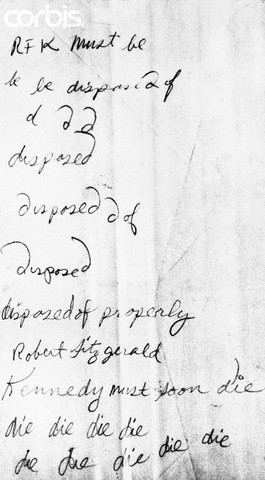 corbis
RFK must be
be be disposed of
d d d
disposed
disposed d of
disposed
disposed of properly
Robert Fitzgerald
Kennedy must soon die
die die die die
die die die die die